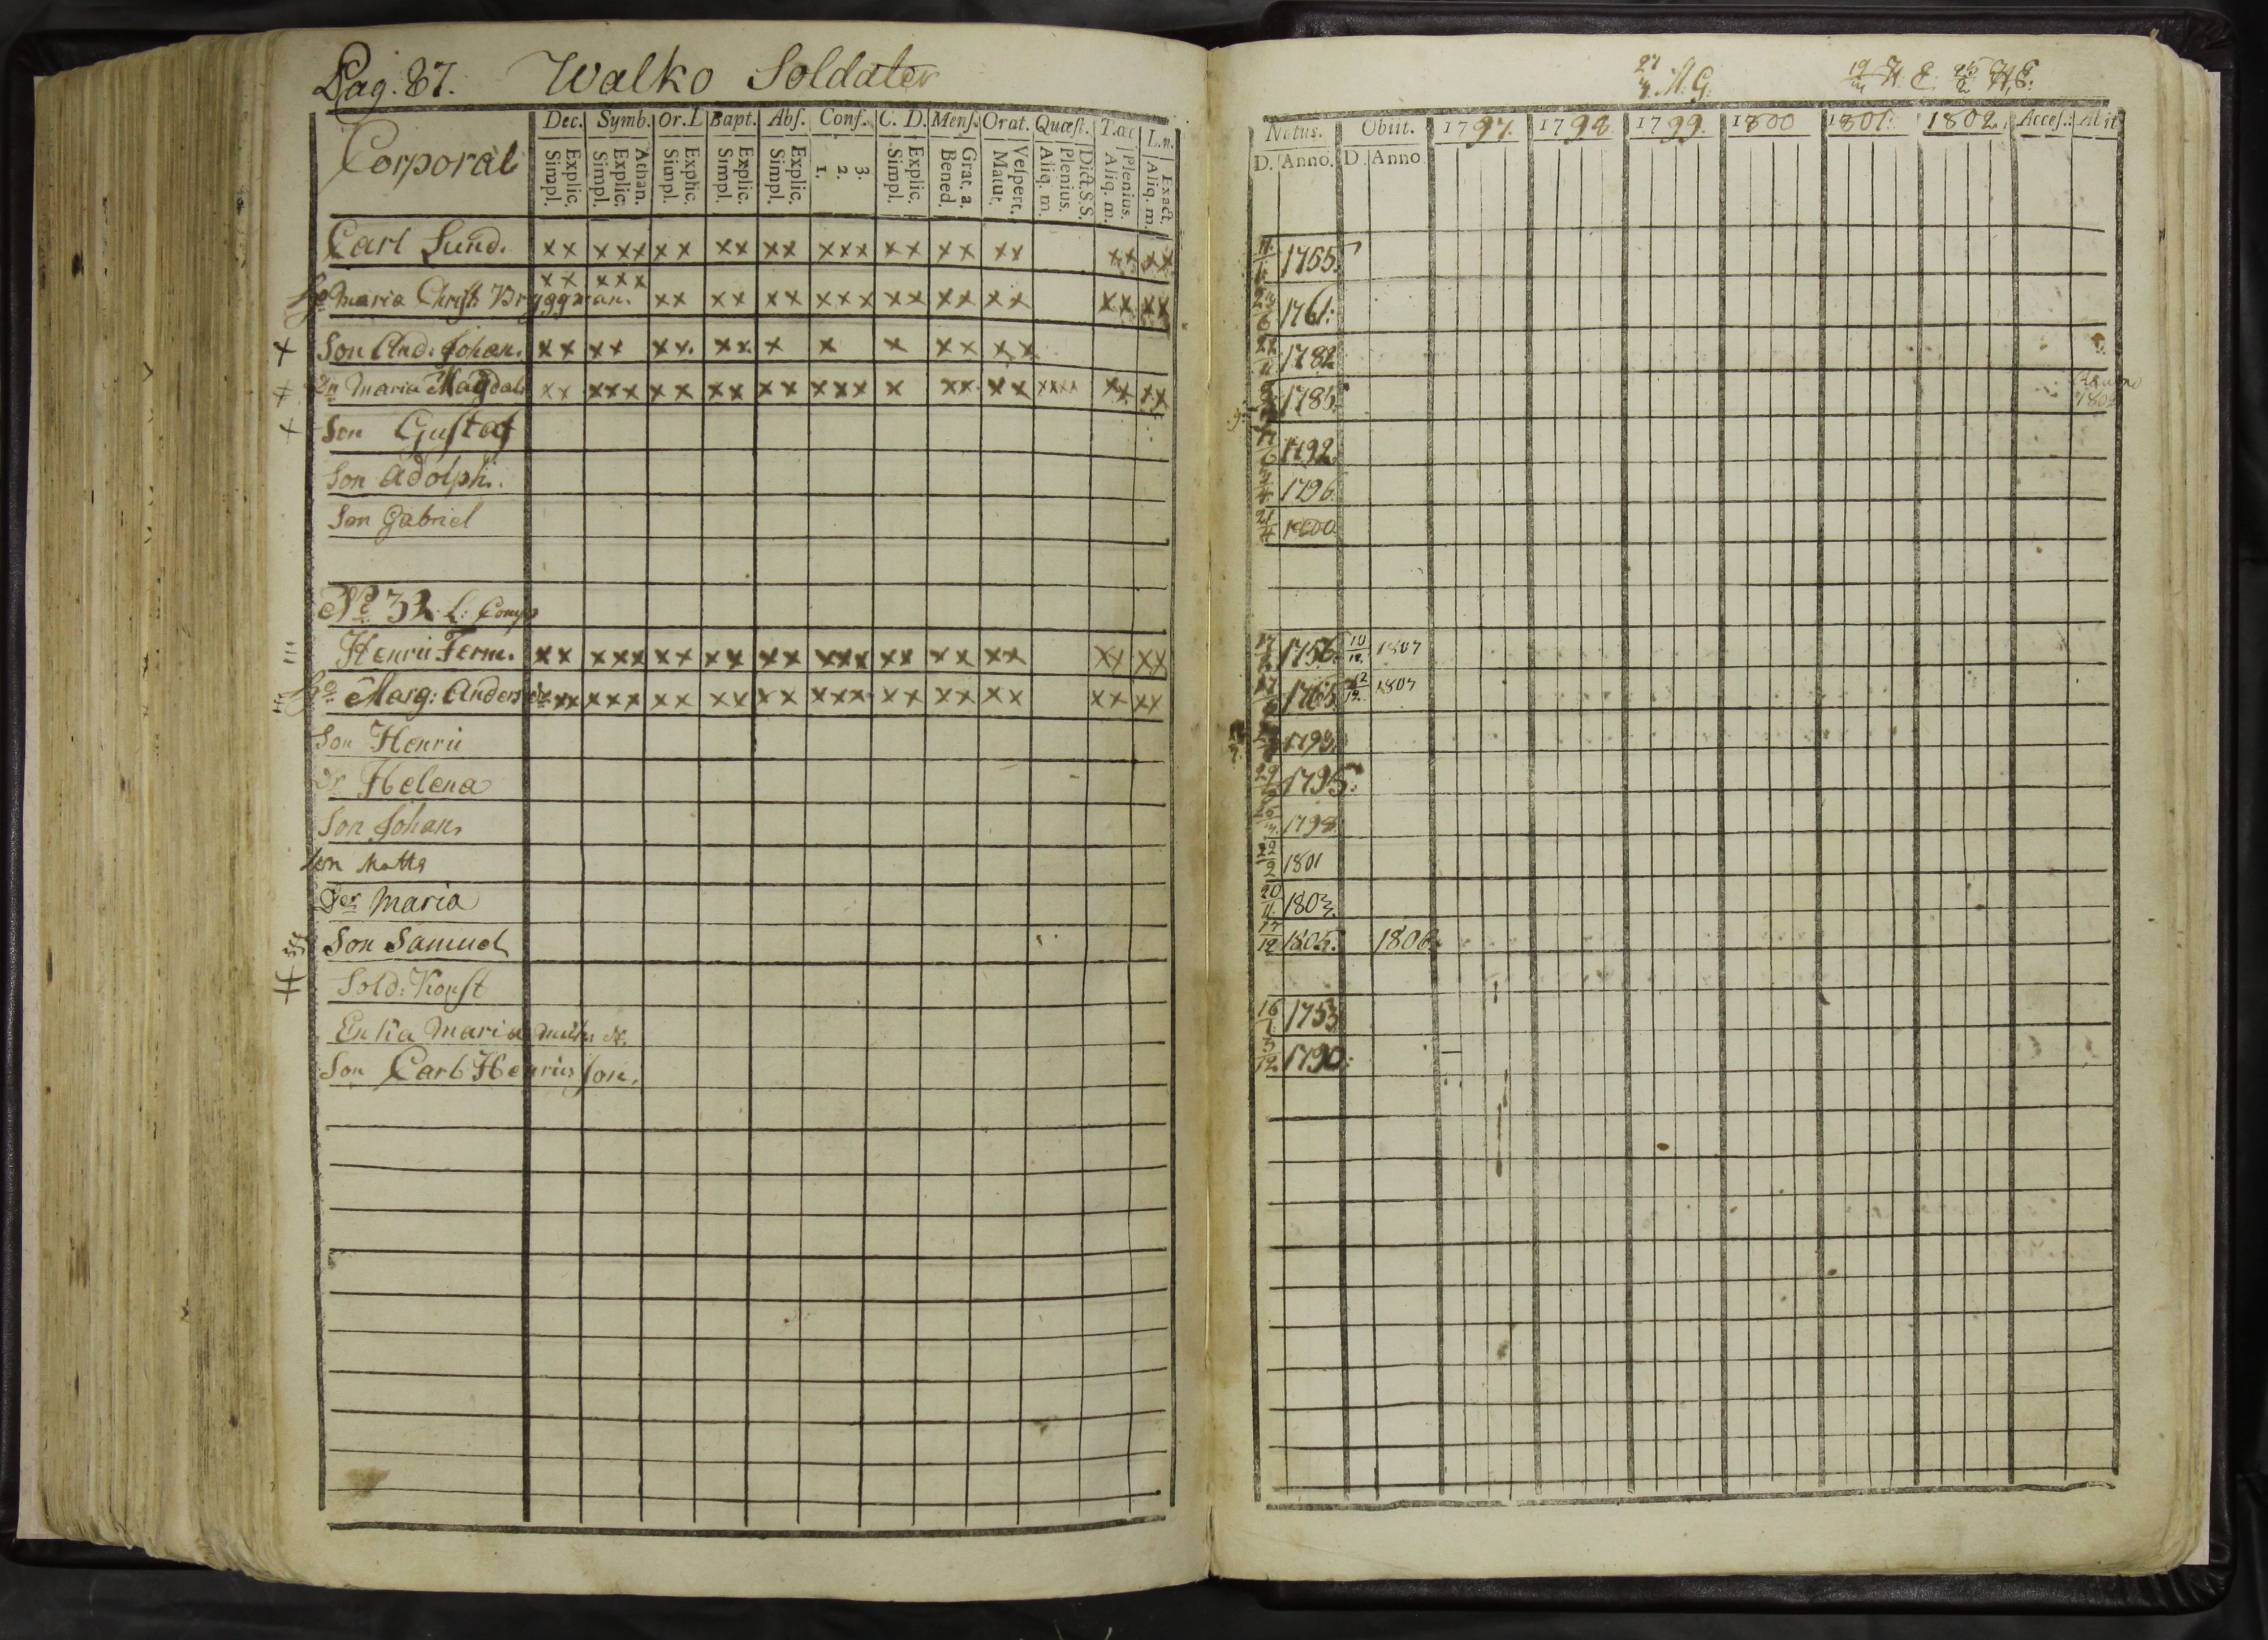 Pag. 87. Walko Soldater
Corporal
Dec. Symb. Or. D Bapt. Abs. Conf. C. D. Mens. Orat. Quæst. T.œc L.n.
Explic. Simpl. Athan. Explic. Simpl. Explic. Simpl. Explic. Simpl. Explic. Simpl. 3. 2. 1. Explic. Simpl. Grat. a. Bened. Vespert. Matut. Dict.S.S. Plenius. Aliq. m. Plenius. Aliq. m. Exact. Aliq. m.
Carl Lund. xx xxx xx xx xx xxx xx xx xx xx xx
xx xxx
Maria Christ. Bryggman. xx xx xx xxx xx xx xx xx xx
Son And. Johan. xx xx xx. xx. x x x xx xx
Maria Magdal xx xxx xx xx xx xxx x xx xx xxxx xx xx
Son Gustaf
Son Adolph.
Son Gabriel
No 32 L: Comp
Henric Ferm. xx xxx xx xx xx xxx xx xx xx xx xx
Marg: Anders dr xx xxx xx xx xx xxx xx xx xx xx xx
Son Henric
Dr Helena
Son Johan
Son Matts
Der Maria
Son Samuel
Sold. Konst
Enka Maria
Son Carl Henricsson.
27 M. G. 19 H. E. 25 H. E.
Natus. Obiit. 1797. 1798 1799 1800 1801. 1802. Acces. Abit
D. Anno. D. Anno
1755.
23 6 1761.
1782
1785.
6 1792.
1796.
21 4 1800
17 1756. 10 12 1807
17 1765. 12 12. 1807
1793.
29 1795.
1798.
22 2 1801
20 11 1803.
17 12 1805. 1806.
16 1 1753
3 12 1790.